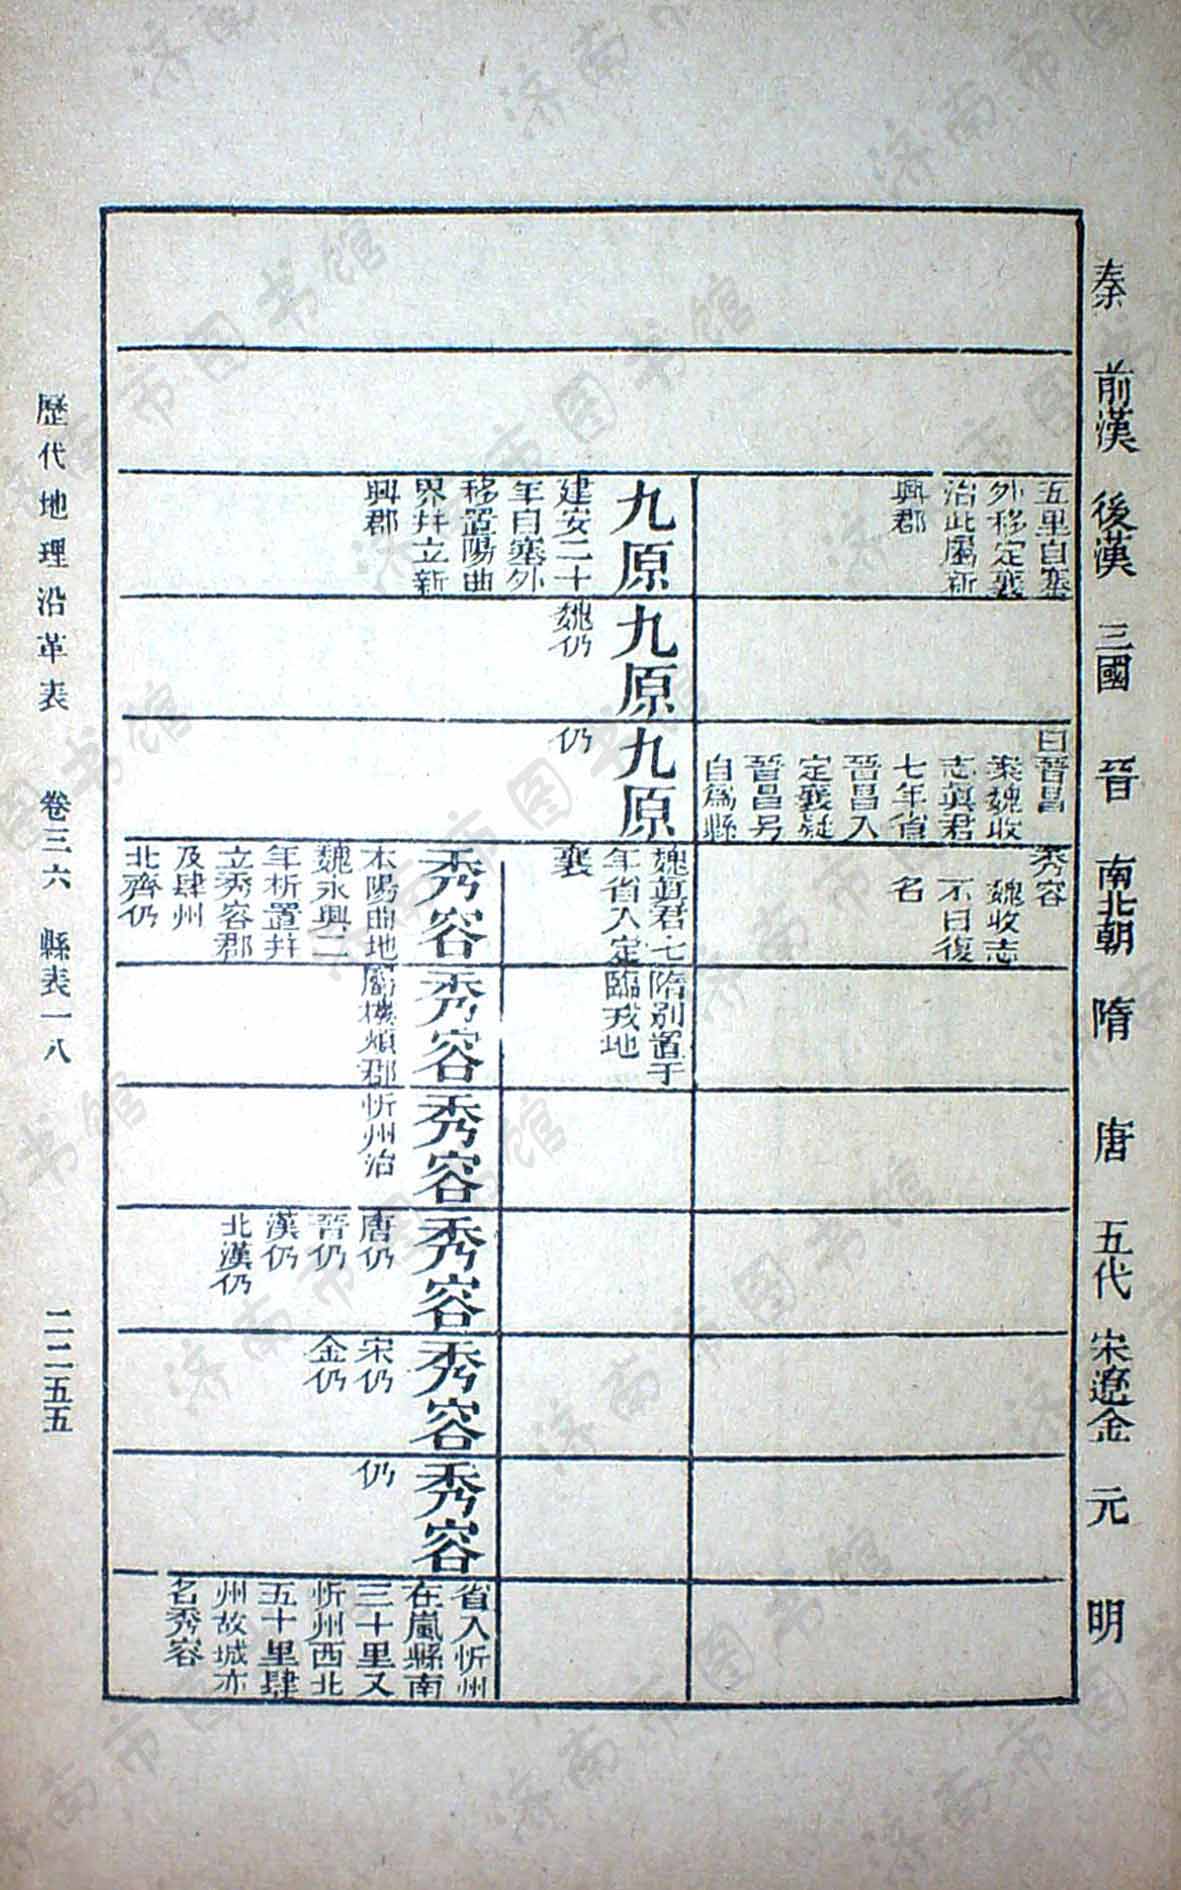 秦
前漢
後漢
三國
晉
南北朝
隋
唐
五代
宋遼金
元
明
五里自塞
外移定襄
治此屬新
興郡
曰晉昌
案魏收
志眞君
七年省
晉昌入
定襄疑
晉昌另
自爲縣
秀容
魏收志
不曰復
名
九原
建安二十
年自塞外
移置陽曲
界并立新
興郡
九原
魏仍
九原
仍
魏眞君七
年省入定
襄
隋別置于
臨戎地
秀容
本陽曲地
魏永興二
年析置并
立秀容郡
及肆州
北齊仍
秀容
屬樓煩郡
秀容
忻州治
秀容
唐仍
晉仍
漢仍
北漢仍
秀容
宋仍
金仍
秀容
仍
省入忻州
在嵐縣南
三十里又
忻州西北
五十里肆
州故城亦
名秀容
歷代地理沿革表
卷三六
縣表一八
二二五五
济南市图书馆